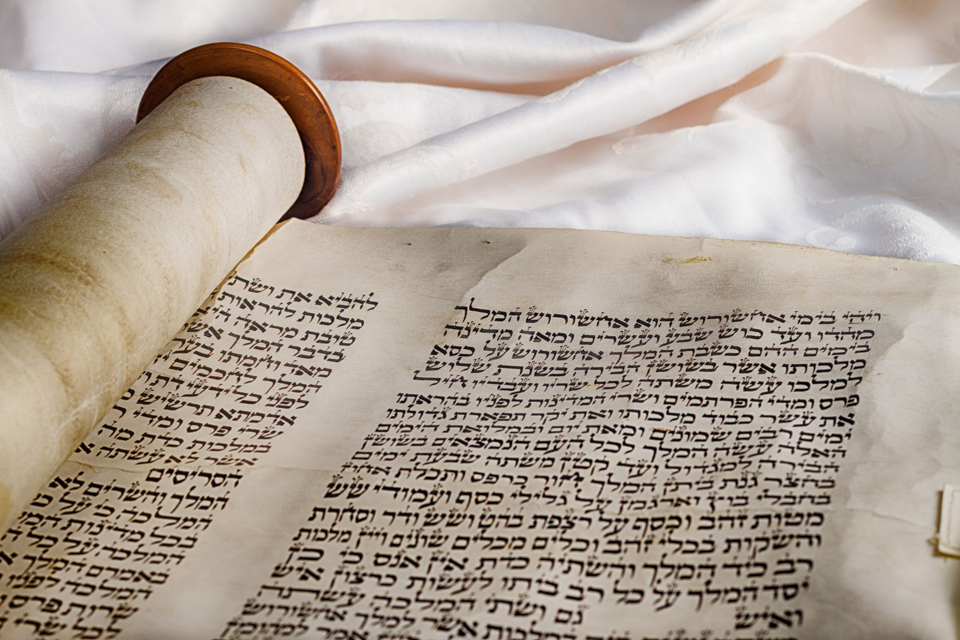 ויהי בימי אחשורוש הוא אחשורוש המלך
מהדו ועד כוש שבע ועשרים ומאה מדינה
בימים ההם כשבת המלך אחשורוש על כסא
מלכותו אשר בשושן הבירה בשנת שלוש
למלכו עשה משתה לכל שריו ועבדיו חיל
פרס ומדי הפרתמים ושרי המדינות לפניו בהראתו
את עשר כבוד מלכותו ואת יקר תפארת גדולתו
ימים רבים שמונים ומאת יום ובמלואת הימים
האלה עשה המלך לכל העם הנמצאים בשושן
הבירה למגדול ועד קטן משתה שבעת ימים
בחצר גנת ביתן המלך חור כרפס ותכלת אחוז
בחבלי בוץ וארגמן על גלילי כסף ועמודי שש
מטות זהב וכסף על רצפת בהט ושש ודר וסחרת
והשקות בכלי זהב וכלים מכלים שונים ויין מלכות
רב כיד המלך והשתיה כדת אין אנס כי כן
יסד המלך על כל רב ביתו לעשות כרצון איש
ואיש גם ושתי המלכה עשתה
המלכות אשר למלך
להביא את ושתי
מלכות להראות
טובת מראה
בדבר המלך אשר
מאד וחמתו בערה
המלך לחכמים
לפני כל ידעי דת
אדמתא תרשיש
שרי פרס ומדי
במלכות כדת מה
אשר לא עשתה
הסריסים
המלך והשרים לא
המלכה כי על כל
מדינות
המלכה על כל
באמרם המלך
המלכה לפניו
שרות פרס
לכל שרי